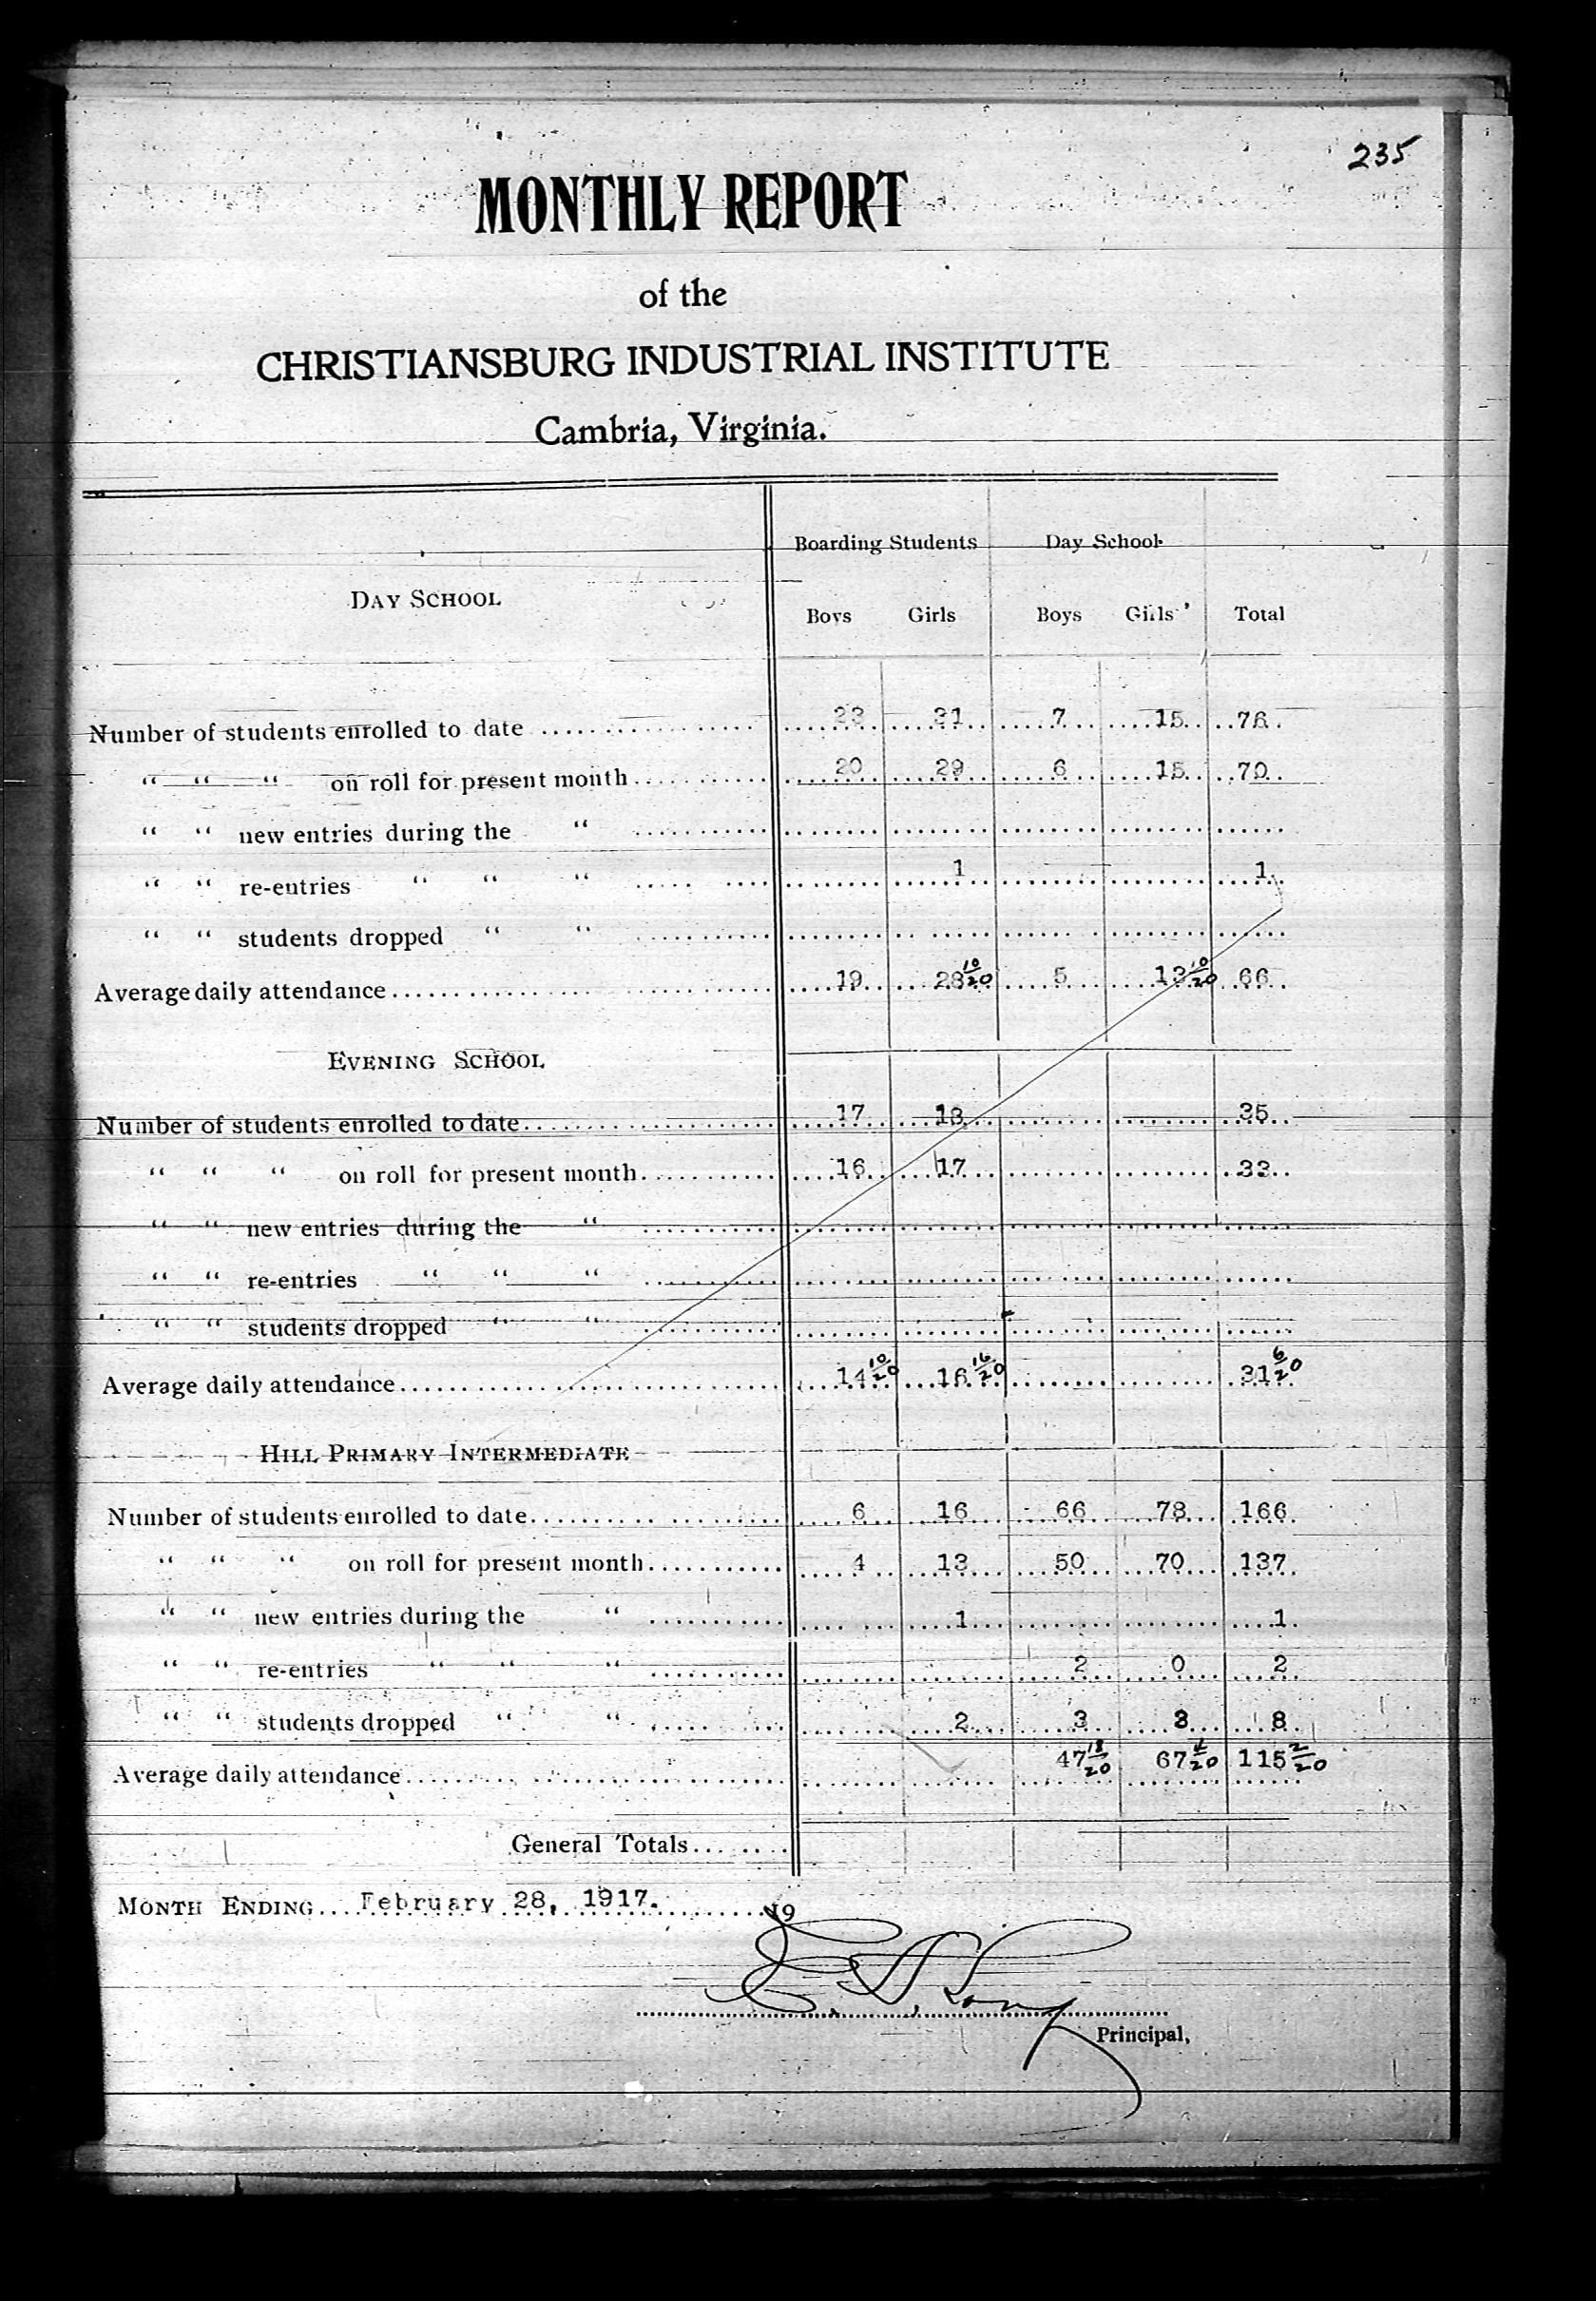 235
MONTHLY REPORT
of the
CHRISTIANSBURG INDUSTRIAL INSTITUTE
Cambria, Virginia.
Boarding Students Day School
DAY SCHOOL
Boys Girls Boys Girls Total
Number of students enrolled to date 23 31 7 15 76
“ “ “ on roll for present month 20 29 6 15 70
“ “ new entries during the “
“ “ re-entries “ “ “ 1 1
“ “ students dropped “ “
Average daily attendance 19 28 10/20 5 13 10/20 66
EVENING SCHOOL
Number of students enrolled to date 17 18 35
“ “ “ on roll for present month 16 17 33
“ “ new entries during the “
“ “ re-entries “ “ “
“ “ students dropped “ “
Average daily attendance 14 10/20 16 16/20 31 6/20
HILL PRIMARY INTERMEDIATE
Number of students enrolled to date 6 16 66 78 166
“ “ “ on roll for present month 4 13 50 70 137
“ “ new entries during the “ 1 1
“ “ re-entries “ “ “ 2 0 2
“ “ students dropped “ “ 2 3 3 8
Average daily attendance 47 18/20 67 4/20 115 2/20
General Totals
MONTH ENDING February 28, 1917. 19
E. A. Long
Principal,